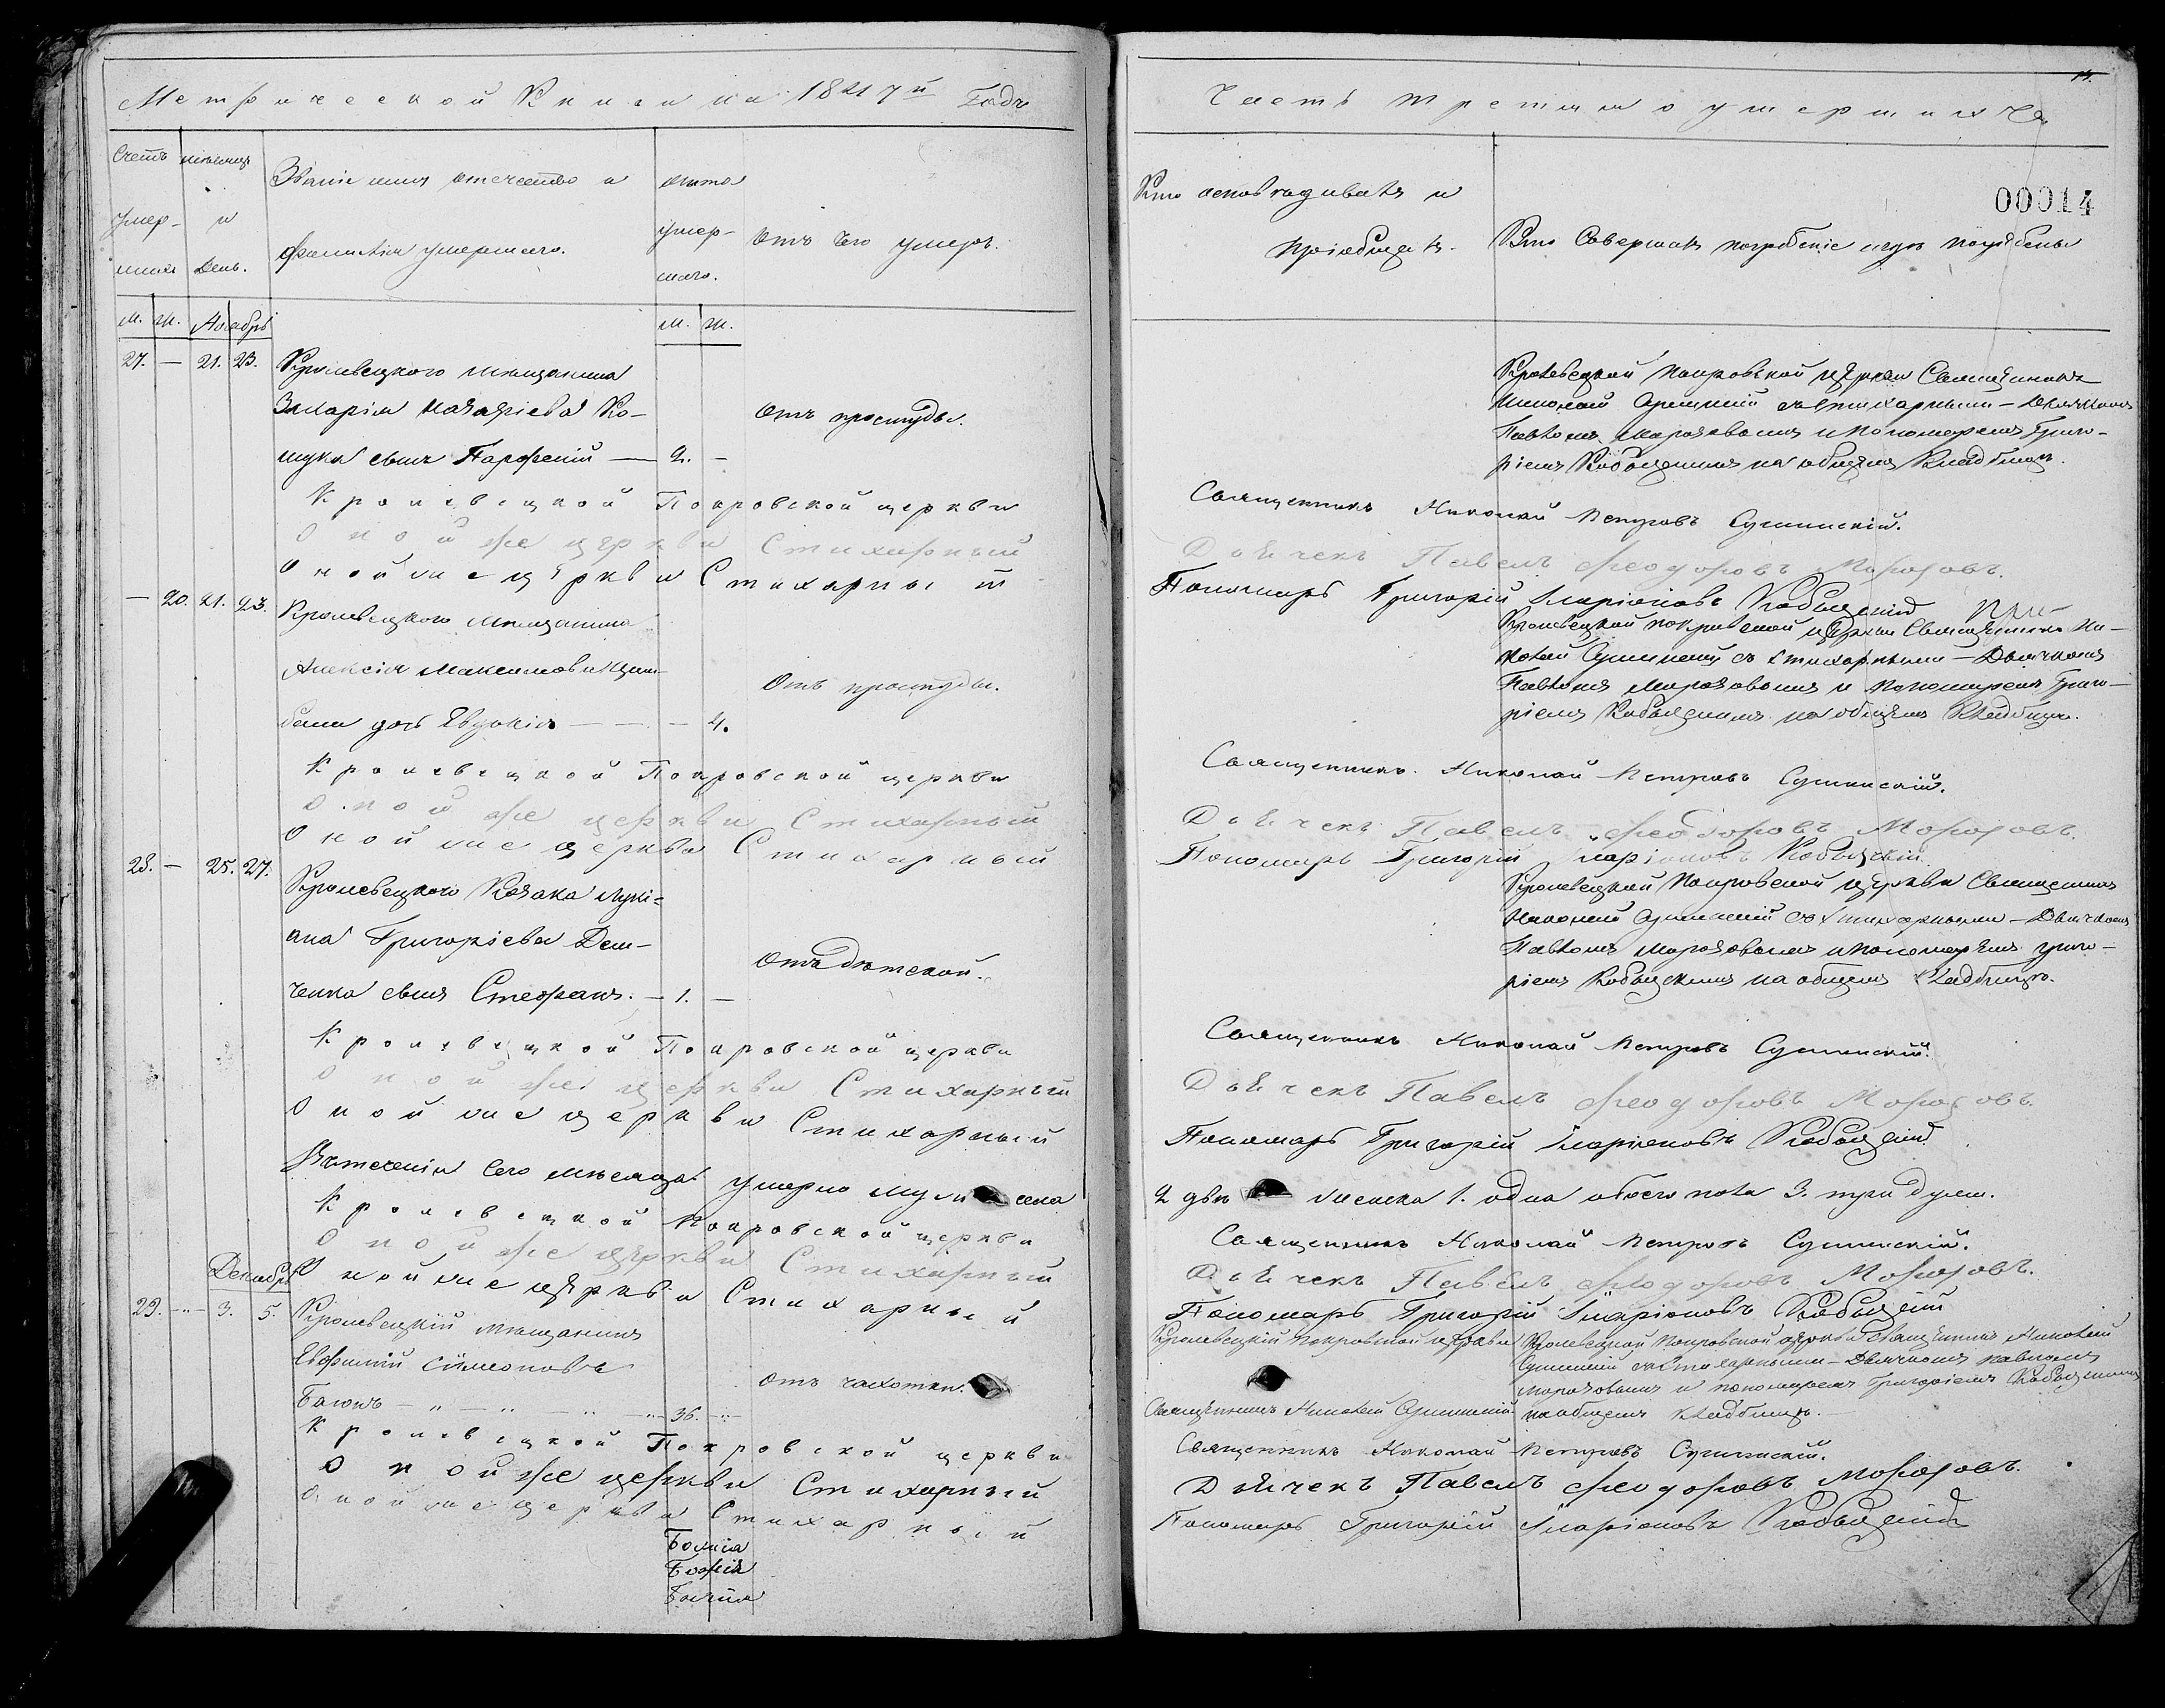 Метрической Книги на 1847й Годъ
Счетъ умер- шихъ
мѣсяцъ и день.
Званіе имя отечество и фамилія умершаго.
лѣта умер- шаго.
отъ чего умеръ.
М. Ж. Ноябрь М. Ж.
27. — 21. 23. Кролевецкого мѣщанина
Захарія Назаріева Ко-
сынъ Парфеній — 2. —
отъ простуды.
Кролевецкой Покровской церкви
Оной же церкви Стихарный
Оной же церкви Стихарный
— 20. 21. 23. Кролевецкого мѣщанина
Алексія Максимова Цим-
бала дочь Евдокія — — — 4.
Отъ простуды.
Кролевецкой Покровской церкви
Оной же церкви Стихарный
Оной же церкви Стихарный
28. — 25. 27. Кролевецкого Козака Лукі-
ана Григоріева Дем-
ченка сынъ Стефанъ. — 1. —
отъ дѣтской.
Кролевецкой Покровской церкви
Оной же церкви Стихарный
Оной же церкви Стихарный
Втеченіи сего мѣсяца умерло муж пола
Кролевецкой Покровской церкви
Оной же церкви Стихарный
Оной же церкви Стихарный
Декабрь
29. — 3. 5. Кролевецкій мѣщанинъ
Евфимій Симеоновъ
— — — 36. —
отъ чахотки.
Кролевецкой Покровской церкви
Оной же церкви Стихарный
Оной же церкви Стихарный
Божія
Божія
Часть третія о умершихъ
00014
Кто исповѣдывалъ и
пріобщалъ.
Кто Совершалъ погребеніе и гдѣ погребены
Кролевецкой Покровской церкви Священникъ
Николай Сушинскій съ стихарными — Дьячкомъ
Павломъ Морозовымъ и пономаремъ Григо-
ріемъ Кобыщскимъ на общемъ Кладбищѣ.
Священникъ Николай Петровъ Сушинскій.
Дьячекъ Павелъ Феодоровъ Морозовъ.
Пономарь Григорій Иларіоновъ
Кролевецкой покровской церкви Священникъ Ни-
колай Сушинскій съ стихарными — Дьячкомъ
Павломъ Морозовымъ и пономаремъ Григо-
ріемъ Кобыщскимъ на общемъ Кладбищѣ.
Священникъ Николай Петровъ Сушинскій.
Дьячекъ Павелъ Феодоровъ Морозовъ.
Пономарь Григорій Иларіоновъ
Кролевецкой Покровской церкви Священникъ
Николай Сушинскій съ стихарными — Дьячкомъ
Павломъ Морозовымъ и пономаремъ Григо-
ріемъ Кобыщскимъ на общемъ Кладбищѣ.
Священникъ Николай Петровъ Сушинскій.
Дьячекъ Павелъ Феодоровъ Морозовъ.
Пономарь Григорій Иларіоновъ
2 двѣ женска 1. одна обоего пола 3. три душ.
Священникъ Николай Петровъ Сушинскій.
Дьячекъ Павелъ Феодоровъ Морозовъ.
Пономарь Григорій Иларіоновъ
Кролевецкій покровской церкви
Священникъ Николай Сушинскій
Кролевецкой Покровской церкви Священникъ Николай
Сушинскій съ Стихарными — Дьячкомъ Павломъ
Морозовымъ и пономаремъ Григоріемъ Кобыщскимъ
на общемъ кладбищѣ.
Священникъ Николай Петровъ Сушинскій.
Дьячекъ Павелъ Феодоровъ Морозовъ.
Пономарь Григорій Иларіоновъ